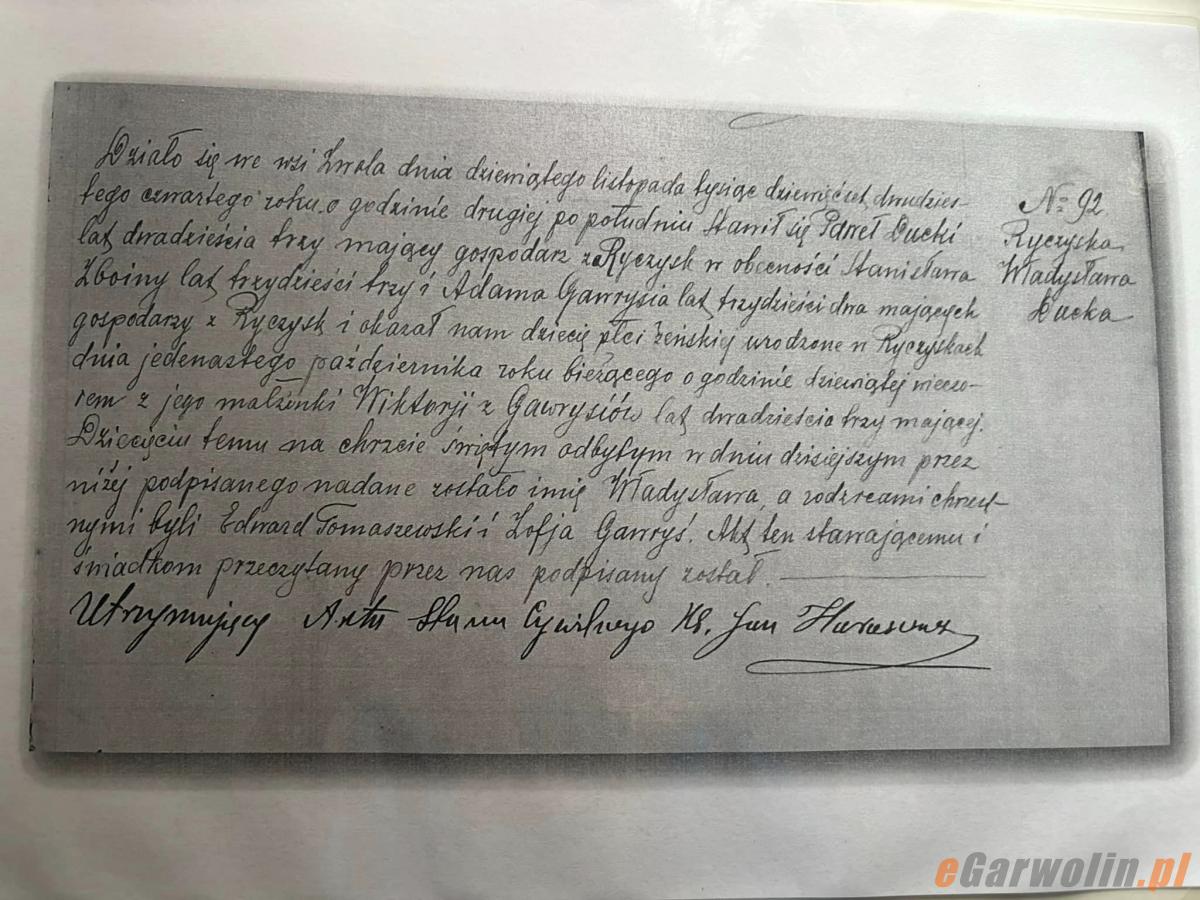 Działo się we wsi Zwola dnia dziewiątego listopada tysiąc dziewięćset dwudzies-
tego czwartego roku, o godzinie drugiej po południu Stawił się Paweł Ducki
lat dwadzieścia trzy mający gospodarz z Ryczysk w obecności Stanisława
Zboiny lat trzydzieści trzy i Adama Gawrysia lat trzydzieści dwa mających
gospodarzy z Ryczysk i okazał nam dziecię płci żeńskiej urodzone w Ryczyskach
dnia jedenastego października roku bieżącego o godzinie dziewiątej wieczo-
rem z jego małżonki Wiktorji z Gawrysiów lat dwadzieścia trzy mającej.
Dziecięciu temu na chrzcie świętym odbytym w dniu dzisiejszym przez
niżej podpisanego nadane zostało imię Władysława, a rodzicami chrzest-
nymi byli Edward Tomaszewski i Zofja Gawryś. Akt ten stawającemu i
świadkom przeczytany przez nas podpisany został.
Utrzymujący Akta Stanu Cywilnego Ks. Jan
№ 92
Ryczyska
Władysława
Ducka
eGarwolin.pl